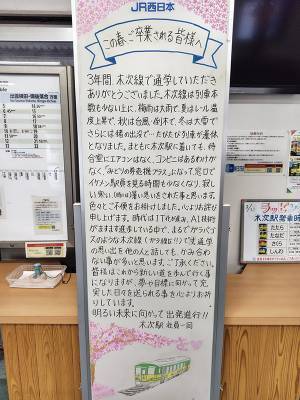 JR西日本
この春、ご卒業される皆様へ
3年間、木次線で通学していただき
ありがとうございました。木次線は列車本
数も少ない上に、梅雨は大雨で、夏はレール温
度上昇で、秋は台風・倒木で、冬は大雪で
さらには猪の出没で…たびたび列車が運休
となりました。まともに木次駅に着いても、待
合室にエアコンはなく、コンビニはあるわけが
なく、「みどりの券売機プラス」になって、窓口で
イケメン駅員を見る時間も少なくなり、寂し
い寒い(時には暑い)思いをされた事と思います。
色々とご不便をお掛けしました。心よりお詫び
申し上げます。時代はITが進み、AI技術が
ますます進歩している中で、まるでガラパゴ
スのような木次線(ガラ線!!)で実通学
の思い出を他の人と話しても、かみ合わ
ない事が多いと思います。ご了承ください。
皆様はこれから新しい道を歩んで行く事
になりますが、夢や目標に向かって充
実した日々を送られる事を心よりお祈
りしています。
明るい未来に向かって出発進行!!
木次駅 社員一同
出雲横田・備後落合 方面
木次駅発車時
たたら
たなだ
さくら
しんわ